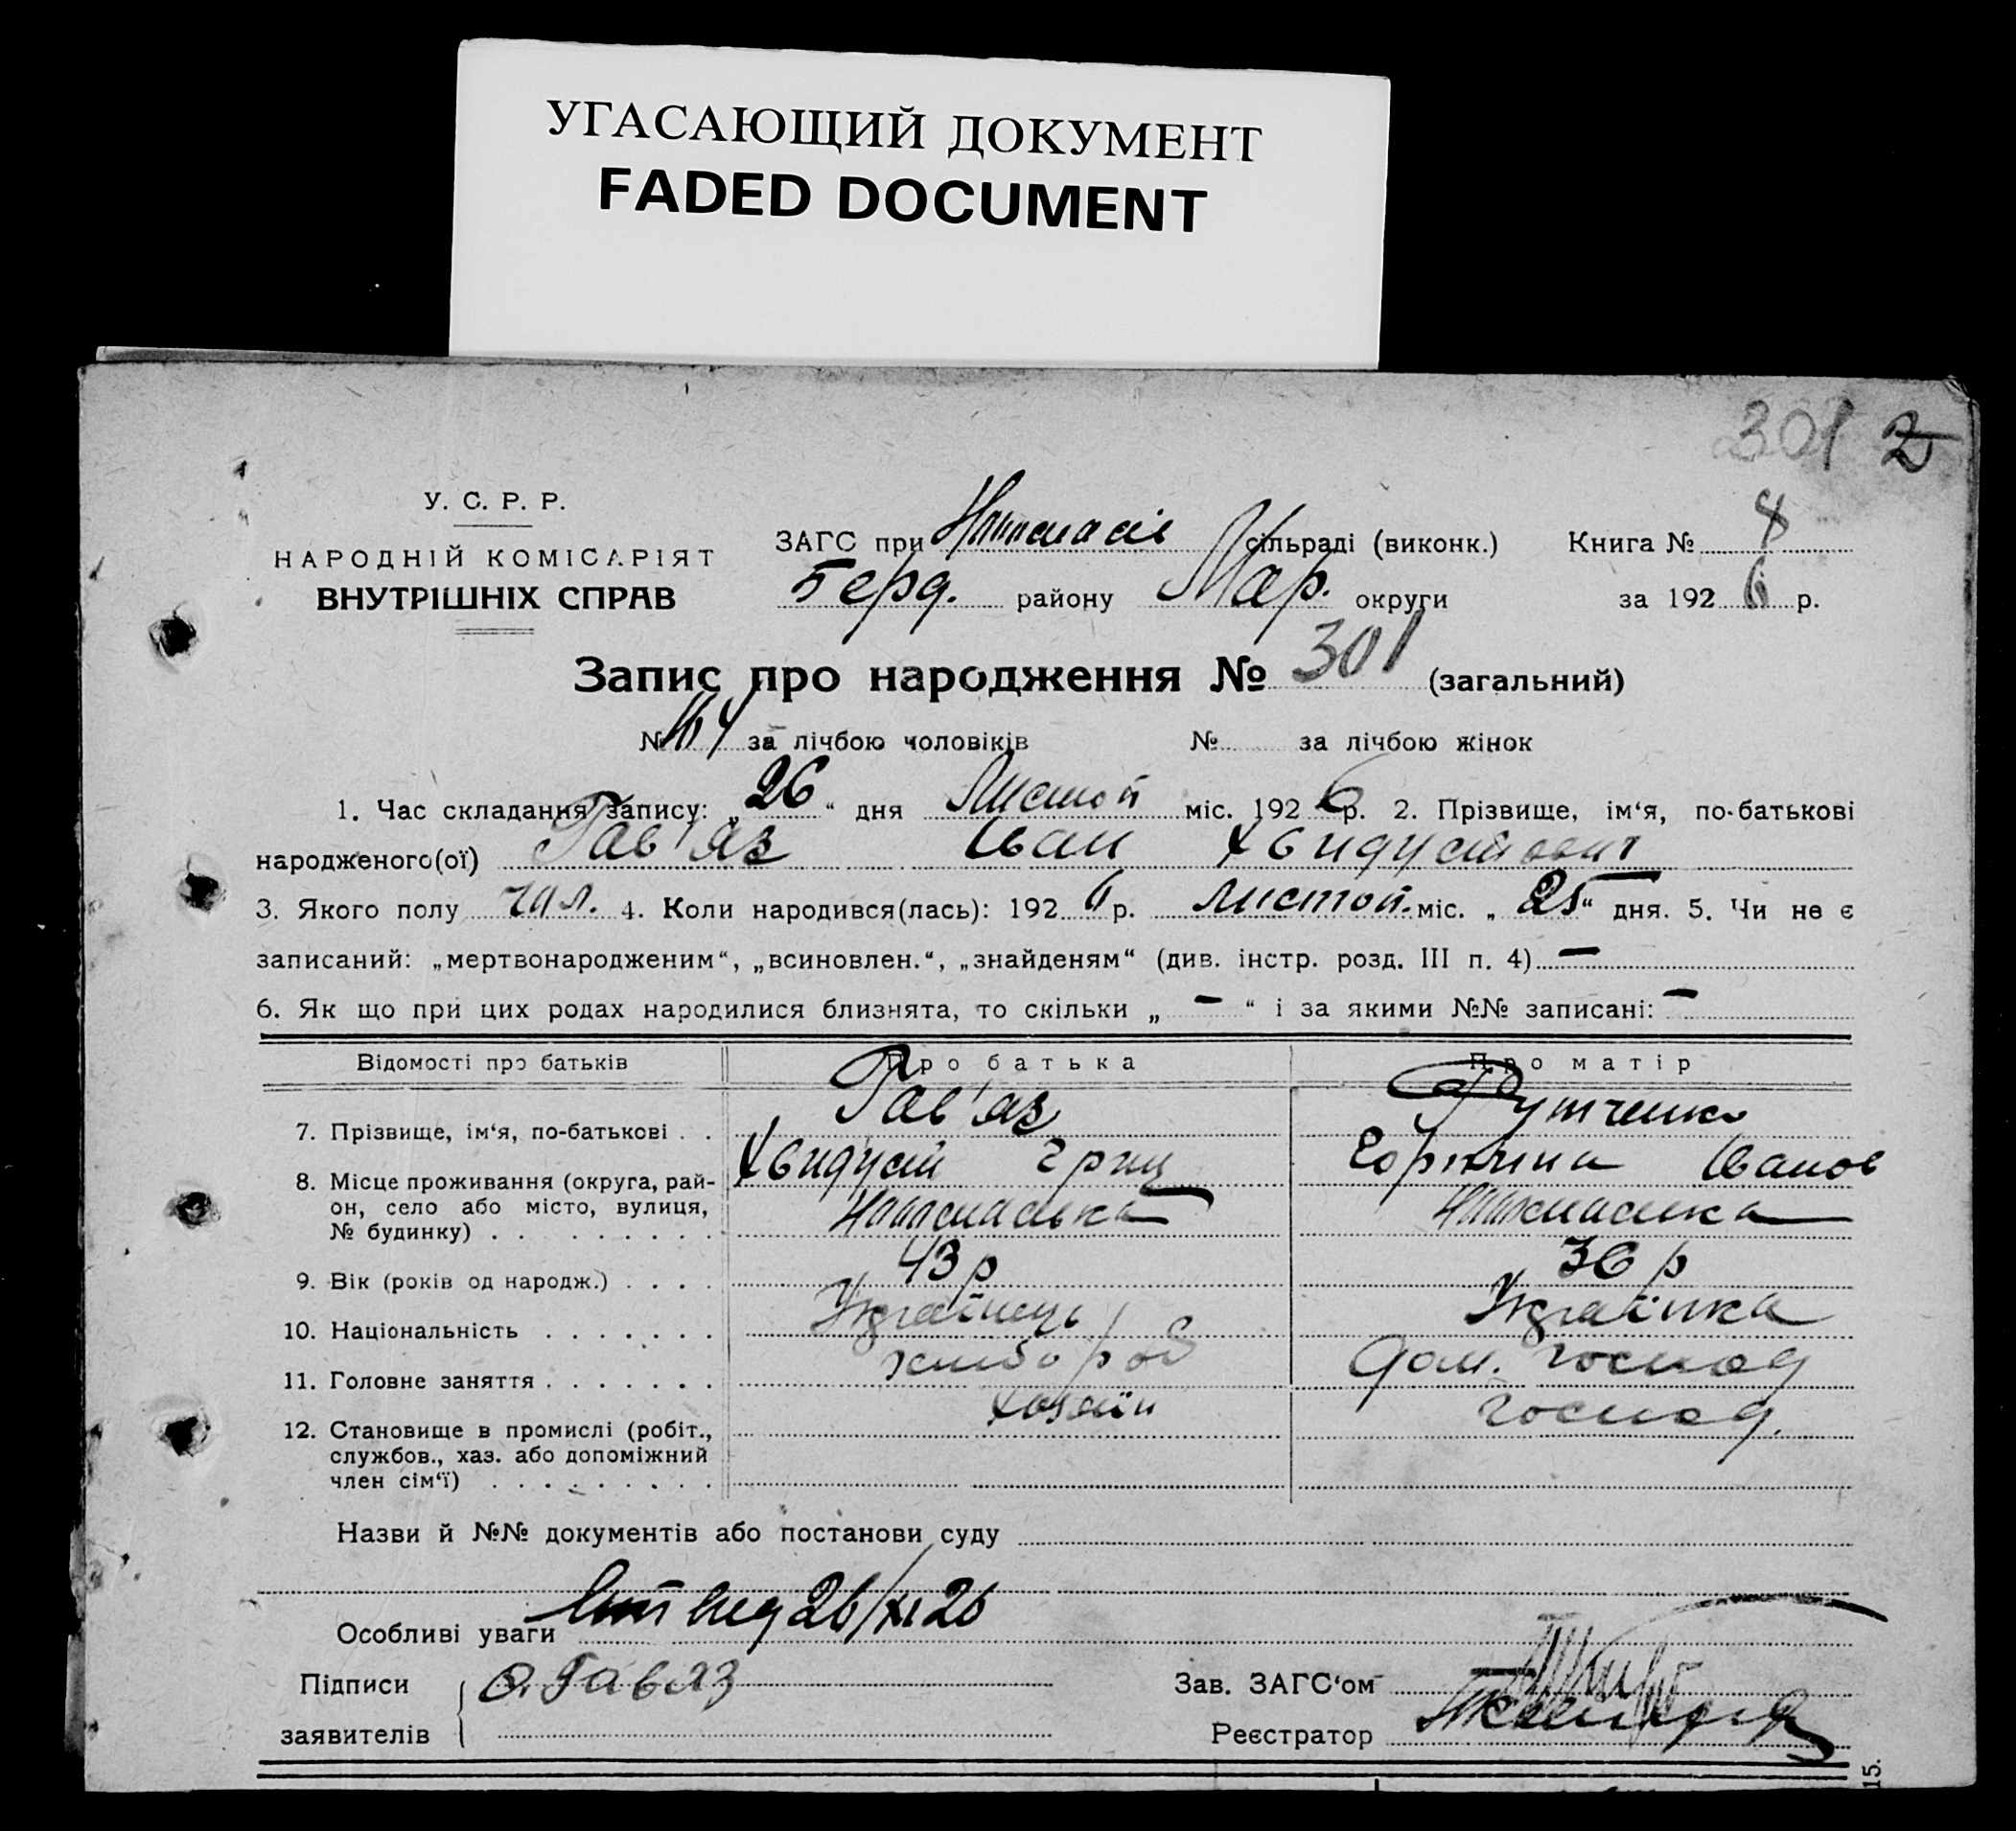 УГАСАЮЩИЙ ДОКУМЕНТ
FADED DOCUMENT
301 2
У. С. Р. Р.
НАРОДНІЙ КОМІСАРІЯТ
ВНУТРІШНІХ СПРАВ
ЗАГС при сільраді (виконк.) Книга № 8
Берд. району Мар. округи за 1926 р.
Запис про народження № 301 (загальний)
№ 164 за лічбою чоловіків № за лічбою жінок
1. Час складання запису: „26“ дня Листоп міс. 1926 р. 2. Прізвище, ім‘я, по-батькові
народженого(ої) Гав'яз Іван Хвидусійович
3. Якого полу чол. 4. Коли народився(лась): 1926 р. листоп. міс. „25“ дня. 5. Чи не є
записаний: „мертвонародженим“, „всиновлен.“, „знайденям“ (див. інстр. розд. III п. 4) —
6. Як що при цих родах народилися близнята, то скільки „ — “ і за якими №№ записані: —
Відомості про батьків Про батька Про матір
7. Прізвище, ім‘я, по-батькові . . Гав'яз
Хвидусій Гриц Іванов
8. Місце проживання (округа, рай-
он, село або місто, вулиця,
№ будинку) . . . . . . . . .
9. Вік (років од народж.) . . . . 43 р 36 р
10. Національність . . . . . . . Українець Українка
11. Головне заняття . . . . . . . хлібороб Дом. господ
12. Становище в промислі (робіт., хозяїн господ.
службов., хаз. або допоміжний
член сім‘ї) . . . . . . . . .
Назви й №№ документів або постанови суду
26/XI 26
Особливі уваги
Підписи О. Гавяз Зав. ЗАГС‘ом
заявителів Реєстратор
15.